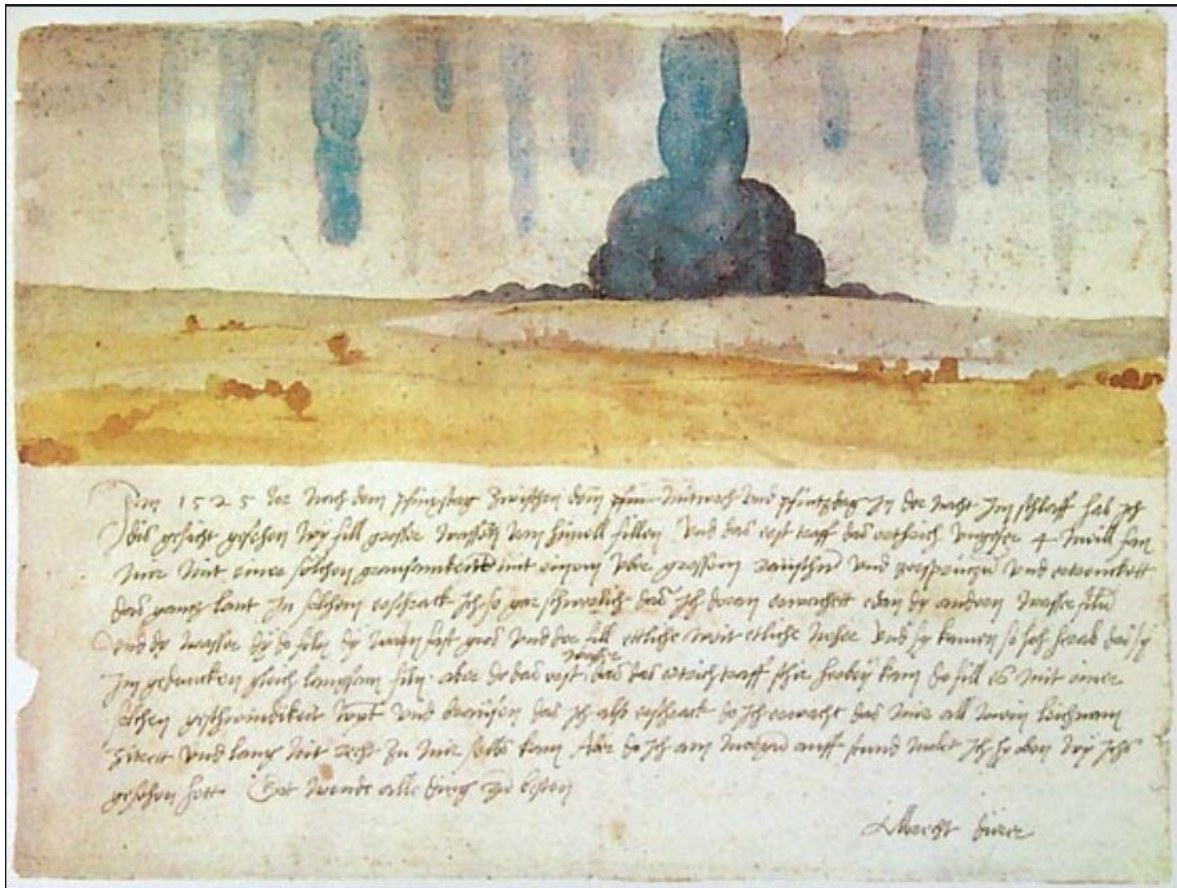 Im 1525 Jor nach dem pfinxstag zwischen dem pfin mitwoch und pfintzdag in der nacht im schlaff hab ich
dis gesicht gesehen wy fill grosser wassern vom himell fillen Und das erst traff das erthrich ungefer 4 meill fan
mir mit einer solchen grausamkeitt mit einem uber grossem raüschn und zersprützn und ertrenckett
das gantz lant In solchem erschrack ich so gar schwerlich das ich doran erwachett edan dy andern wasser filn
Und dy wasser dy do filn dy warn fast gros und der fill ettliche weit etliche neher und sy kamen so hoch herab das sy
im gedancken gleich langsam filn. aber do das erst wasser das das ertrich traff schir herbey kam do fill es mit einer
solchen geschwindikeit wynt und braüsen das ich also erschrack do ich erwacht das mir all mein leichnam
zitrett und lang nit recht zu mir selbs kam Aber do ich am morgn auff stund molet ich hie oben wy ichs
gesehen hett Got wende alle ding zu besten
Albrecht dürer